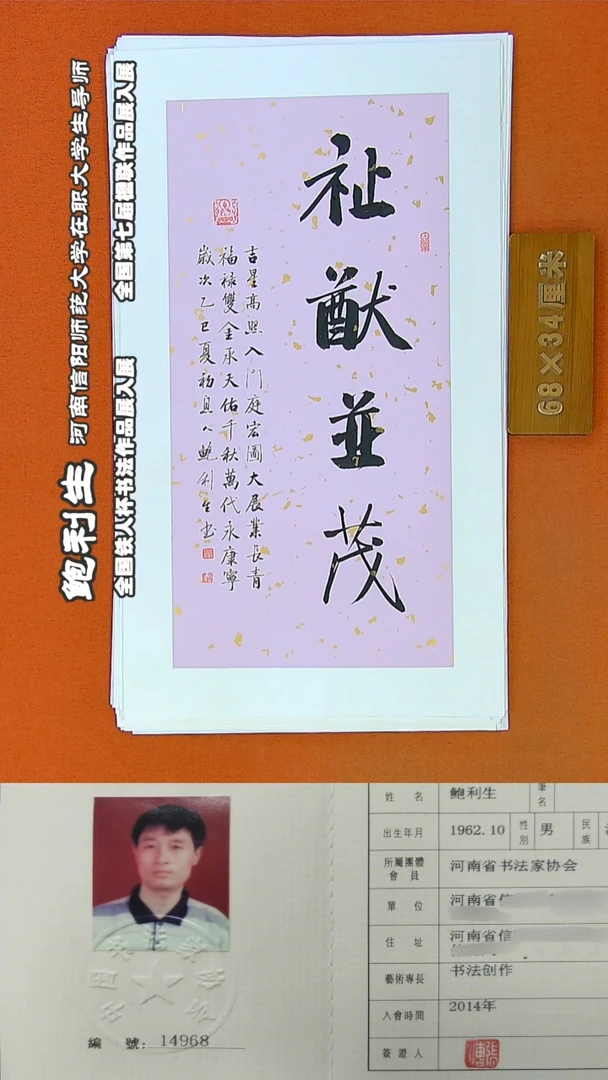 鲍利生 河南信阳师范大学在职大学生导师
全国铁人杯书法作品展入展 全国第七届楹联作品展入展
祉猷並茂
吉星高照入門庭宏圖大展業長青
福禄雙全承天佑千秋萬代永康寧
歲次乙巳夏初
鲍利生书
68×34厘米
姓 名 鲍利生 筆名
出生年月 1962.10 性別 男 民族
所屬團體會員 河南省书法家协会
單 位 河南省信
住 址 河南省信
藝術專長 书法创作
入會時間 2014年
簽證人
編 號: 14968